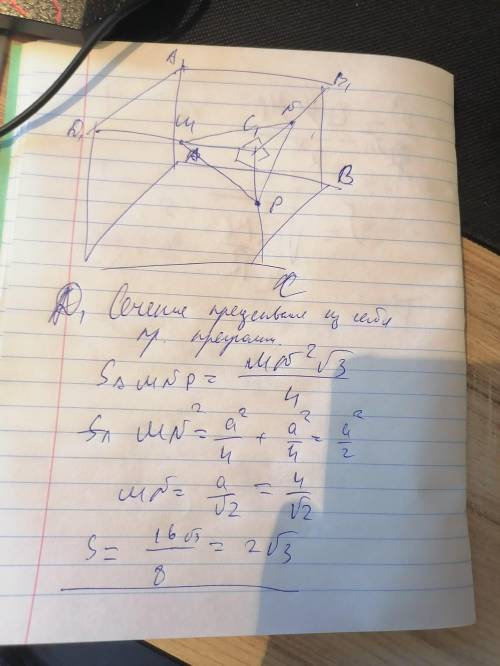 A
B₁
D₁
M
C₁
N
A
B
P
C
D₁ Сечение представля из себя
пр. треугольн.
S△MNP = MN²√3/4
MN² = a²/4 + a²/4 = a²/2
MN = a/√2 = 4/√2
S = 16√3/8 = 2√3